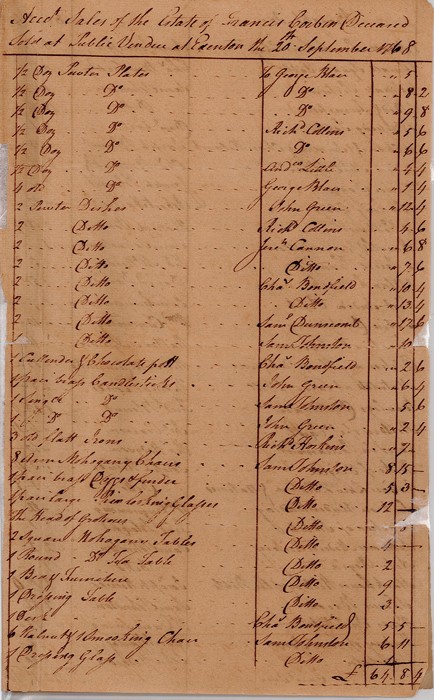 Accot Sales of the Estate of Francis Corbin Deceased
Sold at Public Vendue at Edenton the 20th September 1768
1/2 Doz Pewter Plates to George Blair " 5
1/2 Doz Do Do " 8 2
1/2 Doz Do Do " 9 8
1/2 Doz Do Richd Collins " 5 6
1/2 Doz Do Do " 6 6
1/2 Doz Do Andw Little " 4 4
4 old Do George Blair " 1 4
2 Pewter Dishes John Green " 12 4
2 Ditto Richd Collins " 4 6
2 Ditto Jerh Cannon " 6 8
2 Ditto Ditto " 7 6
2 Ditto Chas Bondfield " 10 4
2 Ditto Ditto " 13 4
2 Ditto Saml 17 6
2 Ditto Saml Johnston " 10
1 & Chocolate pott Chas Bondfield " 2 6
1 pair brass Candlesticks John Green " 6 4
1 single Do Saml Johnston " 5 6
1 Do Do John Green " 2 4
3 old flatt Irons Richd Hoskins " 7
8 Mohogany Chairs Saml Johnston 8 15
1 pair brass Doggs & fender Ditto 5 3
1 pair large Looking Glasses Ditto 12
The Head of Ditto
2 Square Mohogany Tables Ditto 4
1 Round Do Tea Table Ditto 2
1 Bed & Furniture Ditto 9
1 Dressing Table Ditto 3
1 Desk Chas Bondfield 5 5
6 Walnut & 1 Smoaking Chair Saml Johnston 6 11
1 Dressing Glass Ditto 1
£ 64 8 4